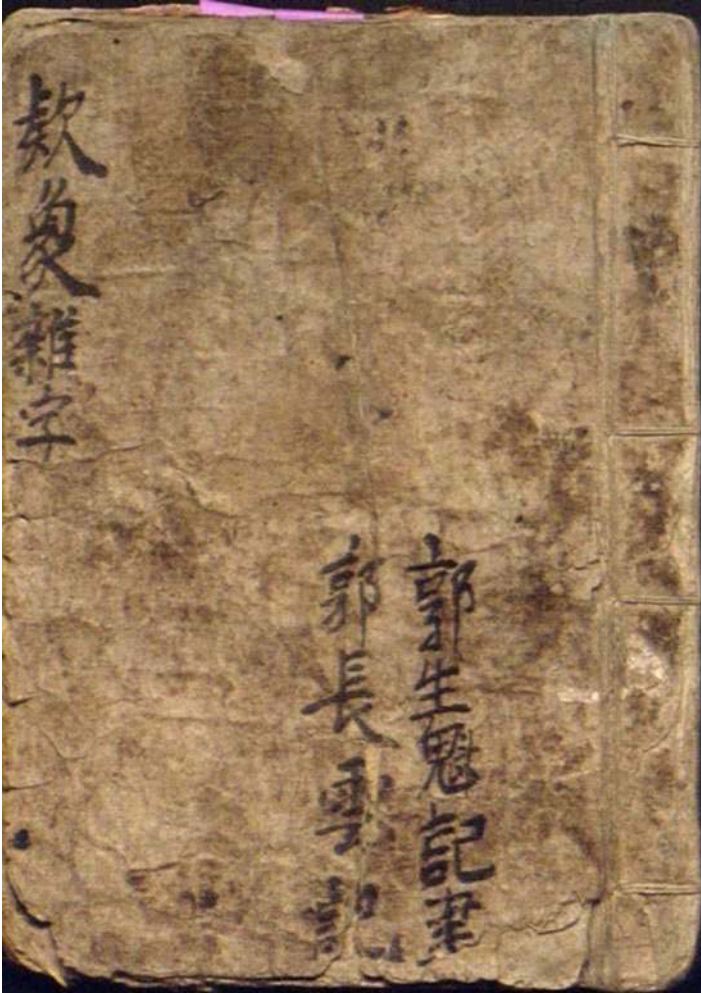 郭生魁記書
郭長雲記
欵象雜字